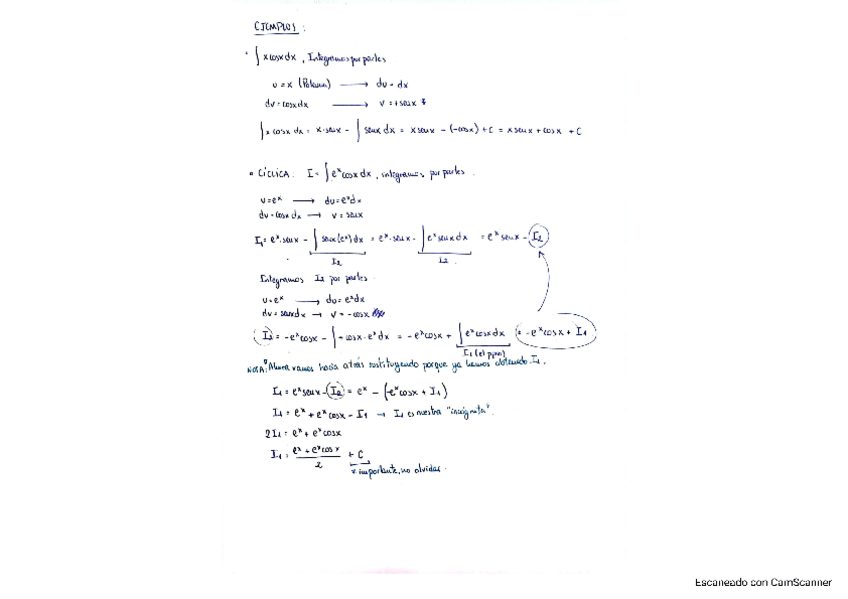 EJEMPLOS:
• ∫ x cosx dx, Integramos por partes
u = x (Polinom) → du = dx
dv = cosx dx → v = + senx
∫ x cosx dx = x·senx - ∫ senx dx = x senx - (-cosx) + C = x senx + cosx + C
• CÍCLICA. I = ∫ e^x cosx dx, integramos por partes.
u = e^x → du = e^x dx
dv = cosx dx → v = senx
I₁ = e^x·senx - ∫ senx (e^x) dx = e^x·senx - ∫ e^x senx dx = e^x senx - I₂
I₂ I₂
Integramos I₂ por partes.
u = e^x → du = e^x dx
dv = senx dx → v = -cosx
I₂ = -e^x cosx - ∫ -cosx·e^x dx = -e^x cosx + ∫ e^x cosx dx = -e^x cosx + I₁
I₁ (el ppio)
NOTA: Ahora vamos hacia atrás sustituyendo porque ya hemos obtenido I₁.
I₁ = e^x senx - I₂ = e^x - (-e^x cosx + I₁)
I₁ = e^x + e^x cosx - I₁ → I₁ es nuestra "incógnita".
2I₁ = e^x + e^x cosx
I₁ = (e^x + e^x cosx)/2 + C
* importante, no olvidar.
Escaneado con CamScanner